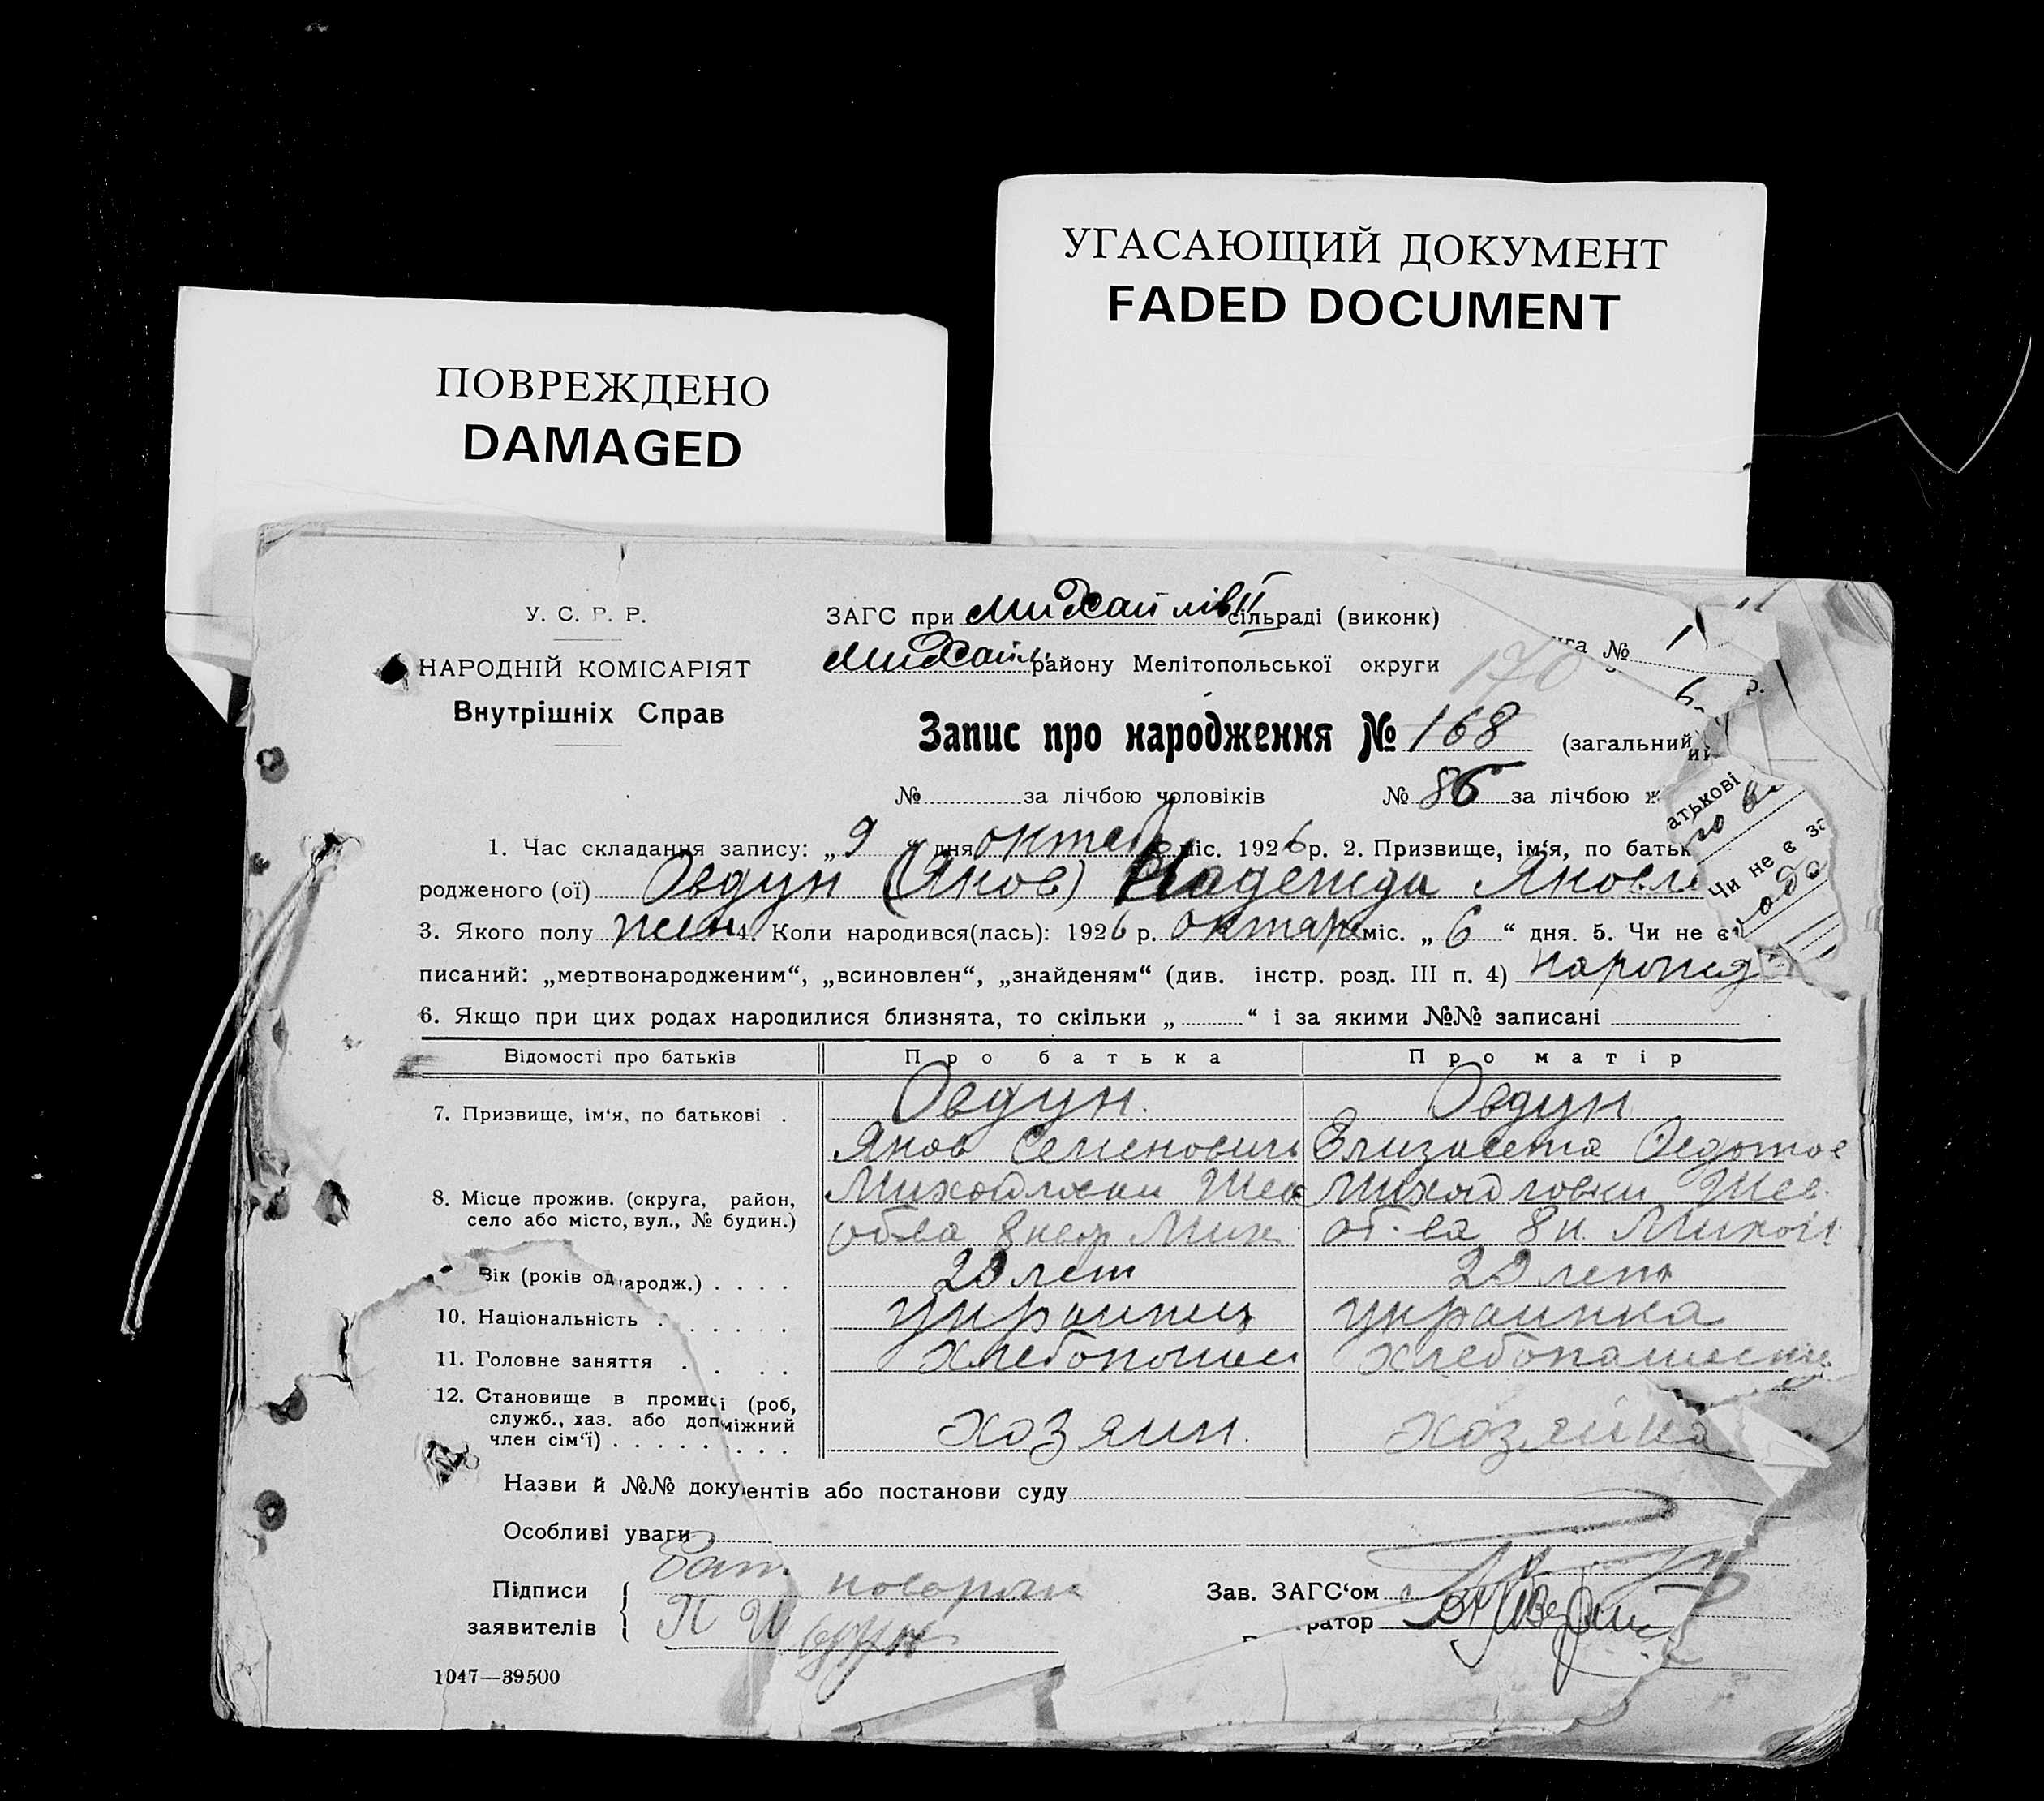 УГАСАЮЩИЙ ДОКУМЕНТ
FADED DOCUMENT
ПОВРЕЖДЕНО
DAMAGED
У. С. Р. Р.
НАРОДНІЙ КОМІСАРІЯТ
Внутрішніх Справ
ЗАГС при Михайлів II сільраді (виконк)
Михайл. району Мелітопольської округи
170
№ 1
Запис про народження № 168 (загальний
№ за лічбою чоловіків № 86 за лічбою ж
1. Час складання запису: „9“ дня октяб міс. 1926 р. 2. Призвище, ім‘я, по батьк
родженого (ої) Овдун (Яков) Надежда Яковл
3. Якого полу жен 4. Коли народився(лась): 1926 р. октяр міс. „6“ дня. 5. Чи не є
писаний: „мертвонародженим“, „всиновлен“, „знайденям“ (див. інстр. розд. III п. 4)
6. Якщо при цих родах народилися близнята, то скільки „ “ і за якими №№ записані
атькові
Чи не є за
Відомості про батьків Про батька Про матір
7. Призвище, ім‘я, по батькові . Овдун. Овдун
Яков Семенович Елизавета Федотов
8. Місце прожив. (округа, район, село або місто, вул., № будин.) Михайловки Шев Михайловки Шев.
об-ва Мих. об-ва 8 н. Михай
Вік (років од народж.) . . . . 20 лет 20 лет
10. Національність . . . . . . украинец украинка
11. Головне заняття . . . . хлебопашец
12. Становище в промисі (роб, служб., хаз. або допоміжний член сім‘ї) . . . . . . . . . хозяин. хозяйка
Назви й №№ документів або постанови суду
Особливі уваги
Підписи
заявителів
Зав. ЗАГС‘ом
ратор
1047—39500